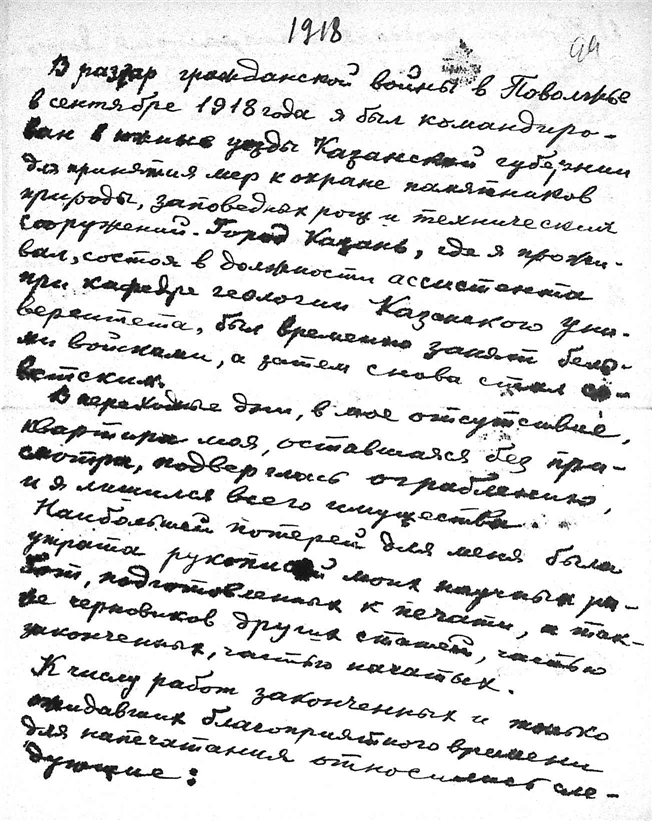 1918
99
В разгар гражданской войны в Поволжье
в сентябре 1918 года я был командиро-
ван в южные уезды Казанской губернии
для принятия мер к охране памятников
природы, заповедных рощ и технических
сооружений. Город Казань, где я прожи-
вал, состоя в должности ассистента
при кафедре геологии Казанского Уни-
верситета, был временно занят белы-
ми войсками, а затем снова стал со-
ветским.
В переходные дни, в мое отсутствие,
квартира моя, оставшаяся без при-
смотра, подверглась ограблению,
и я лишился всего имущества.
Наибольшей потерей для меня была
утрата рукописей моих научных ра-
бот, подготовленных к печати, а так-
же черновиков других статей, частью
законченных, частью начатых.
К числу работ законченных и только
ожидавших благоприятного времени
для напечатания относились сле-
дующие: